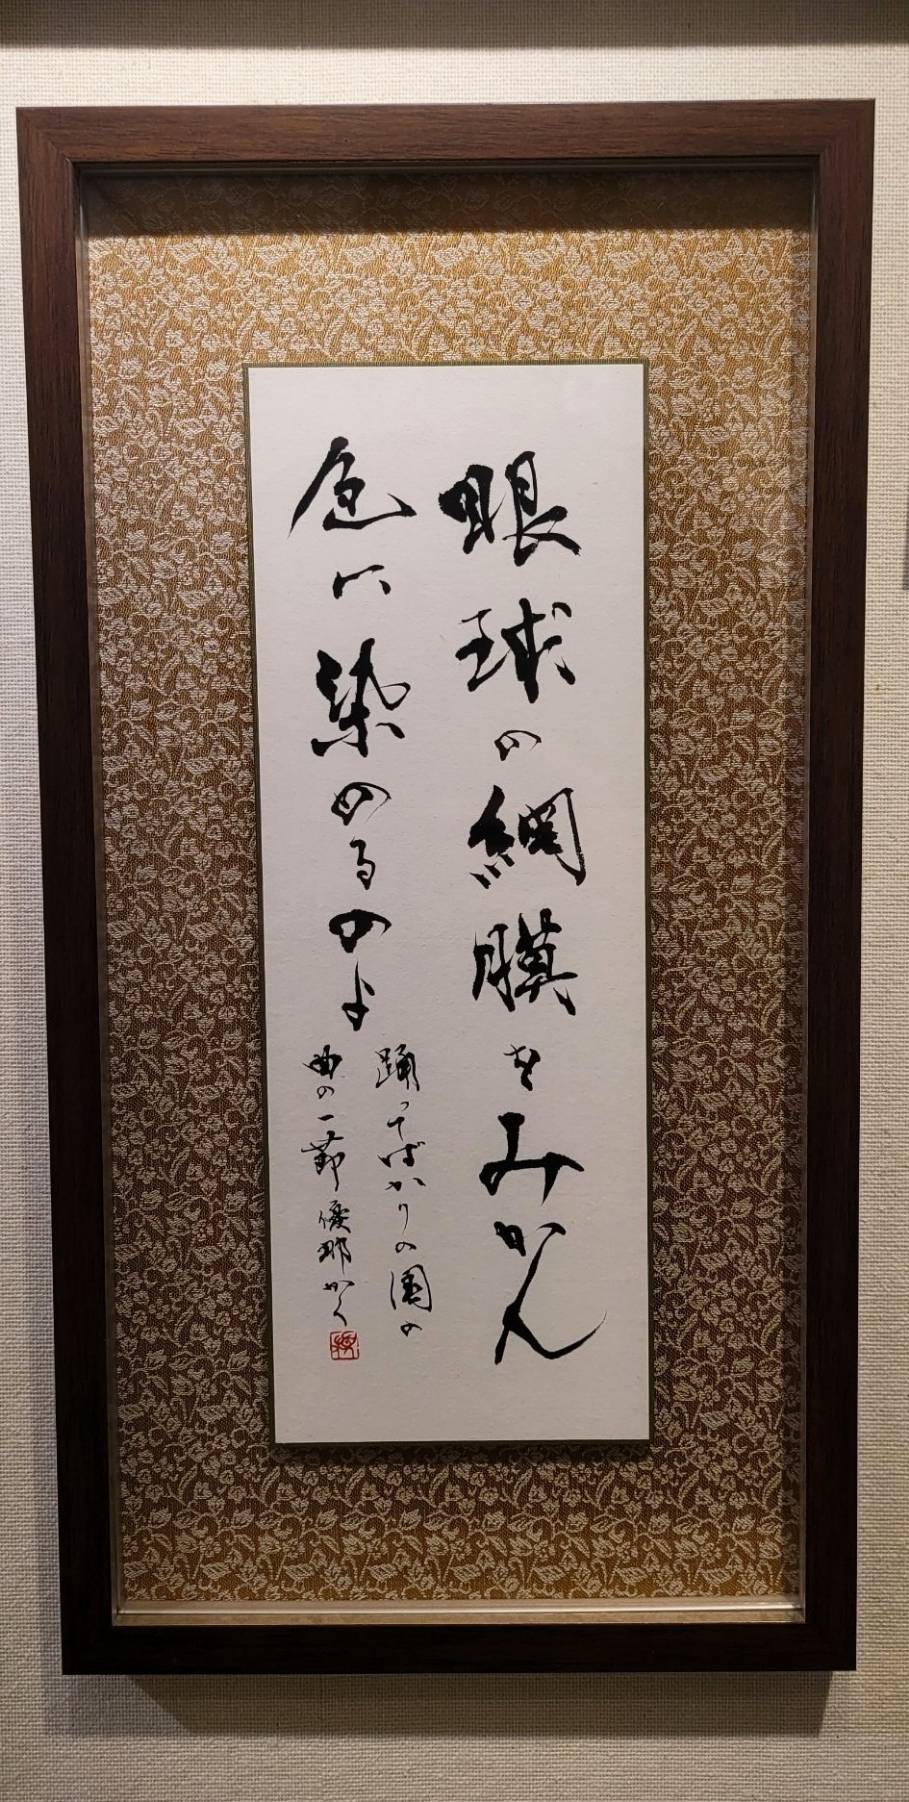 眼球の網膜をみかん
色に染めるのよ
踊ってばかりの国の
曲の一節 優那かく